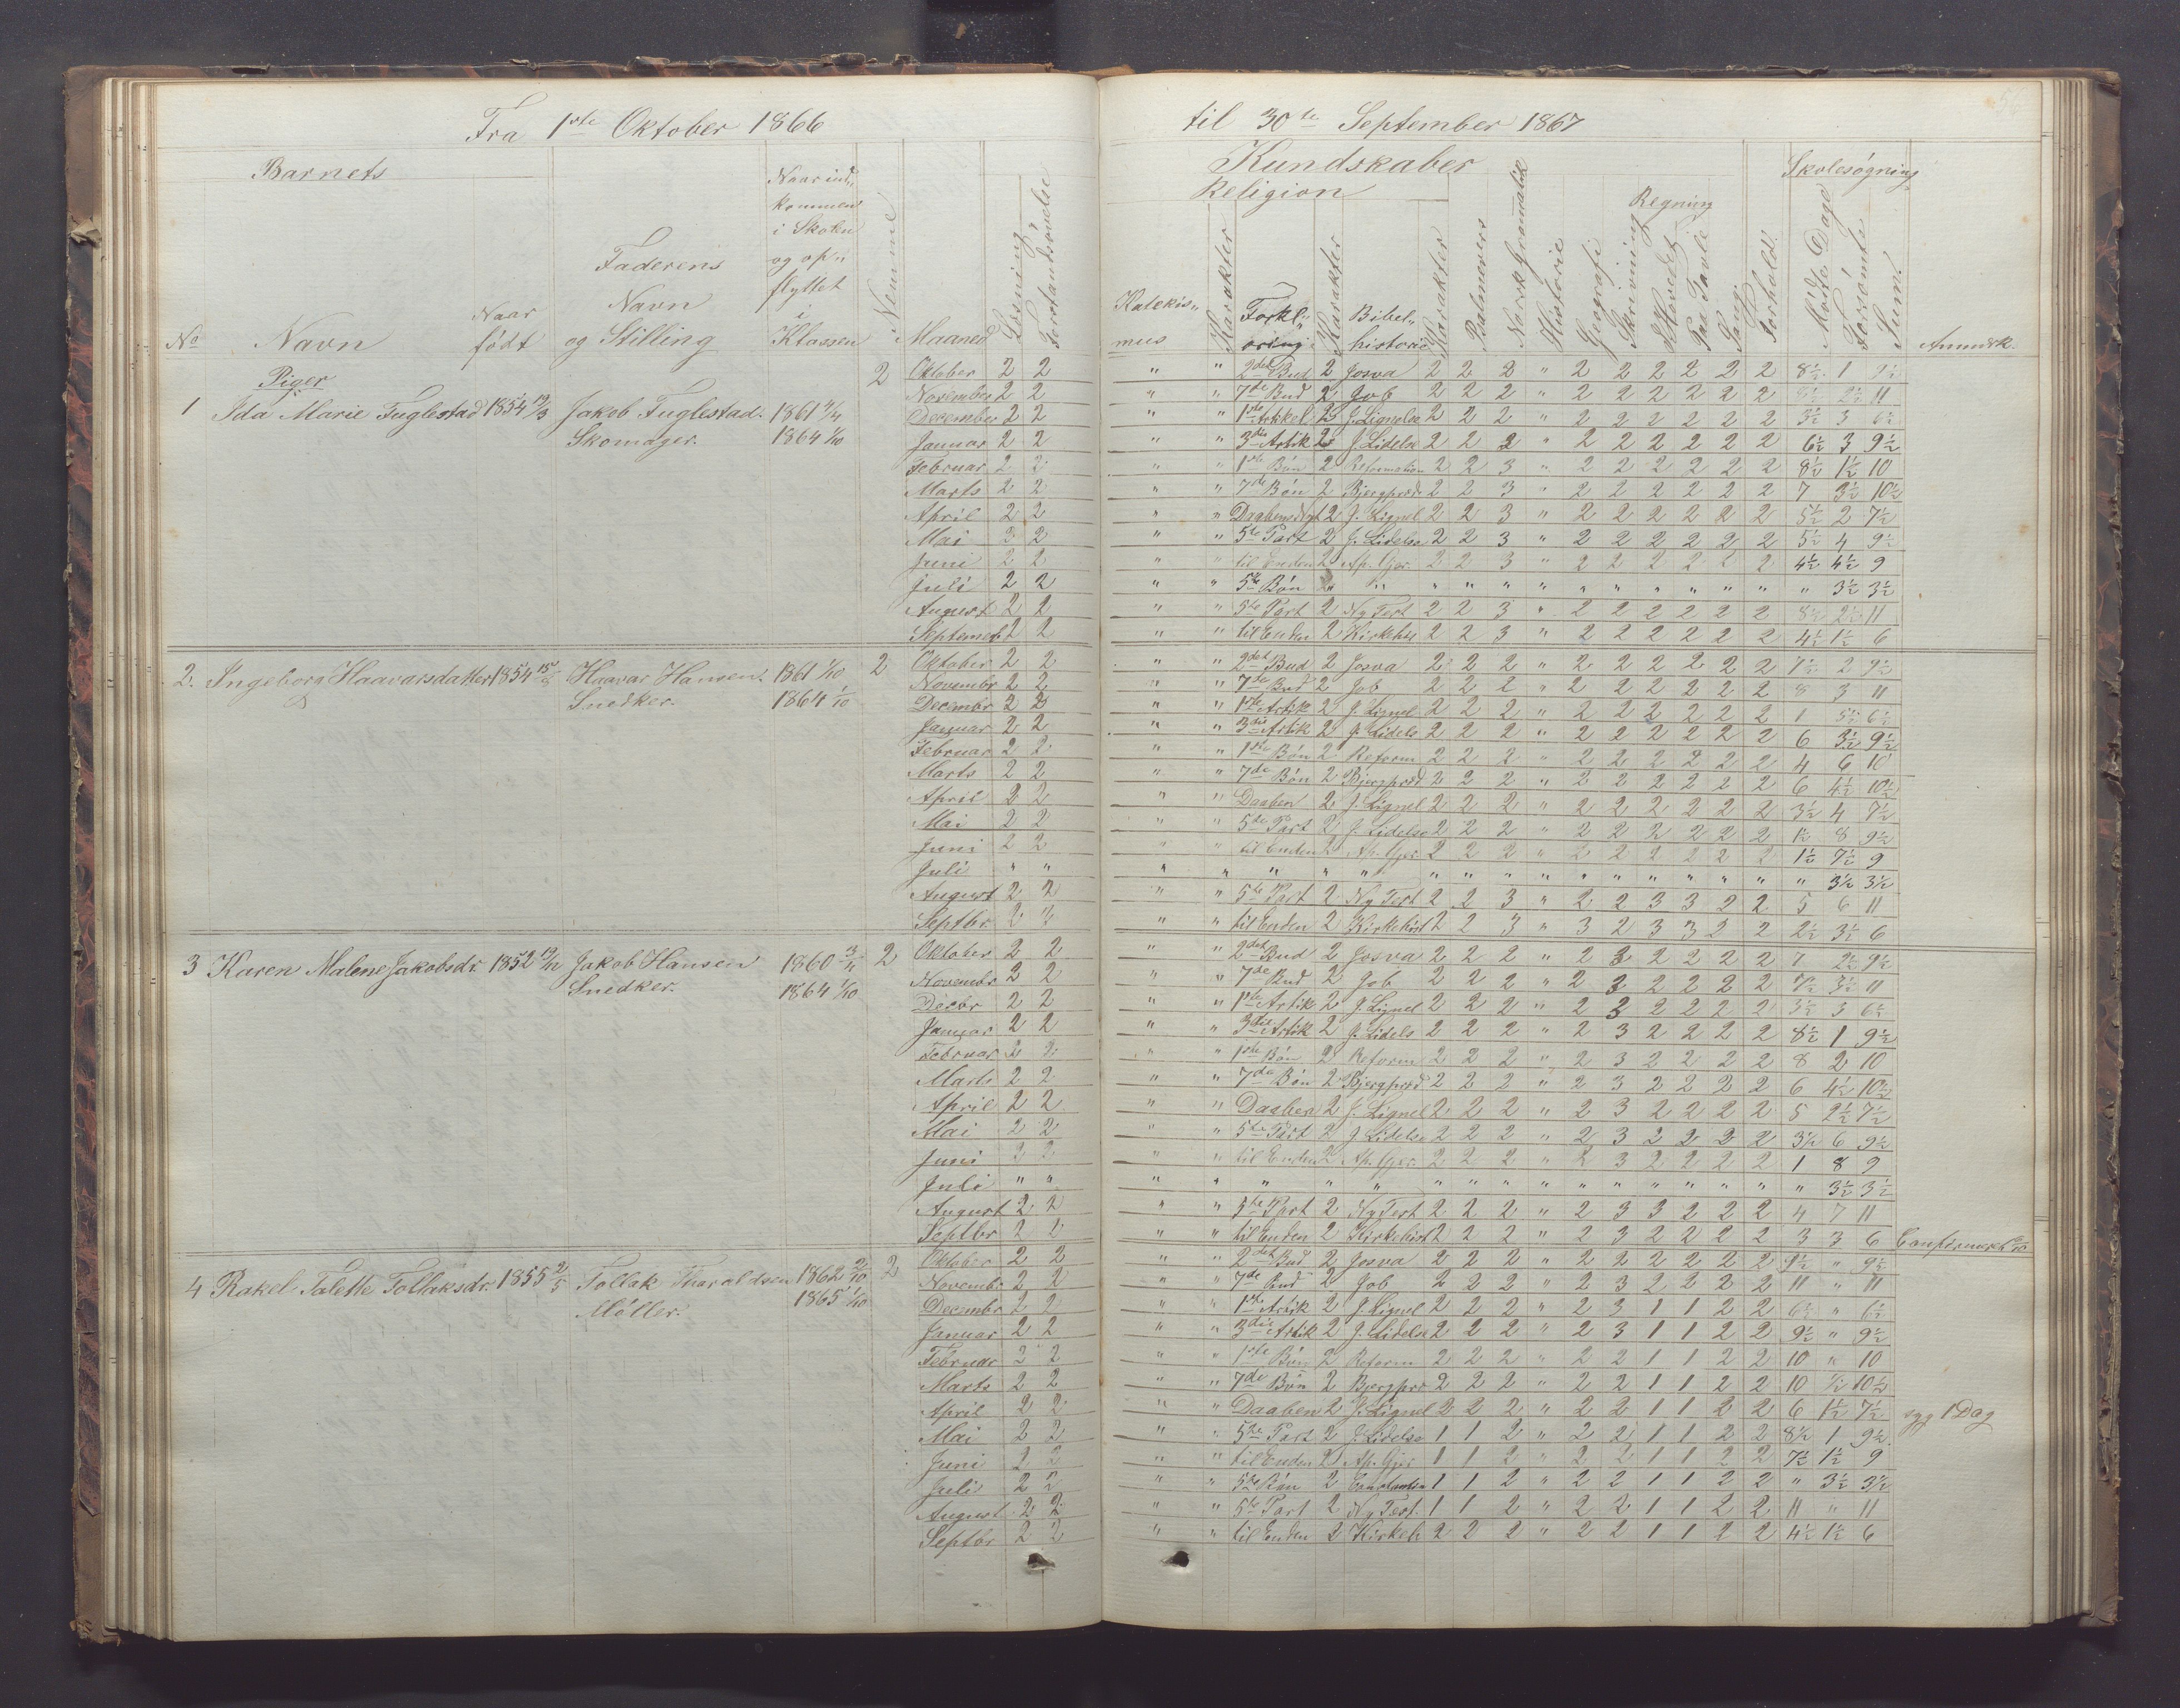 Fra 1ste Oktober 1866
Barnets
No
Navn
Naar
født
Faderens
Navn
og Stilling
Naar ind„
kommen
i Skolen
og op„
flyttet
i
Klassen
Nemme
Maaned
Læsning
Forstandsøvelse
Piger
1 Ida Marie Fuglestad 1854 19/3 Jakob Fuglestad. 1861 4/4 2
Skomager. 1864 1/10
Oktober 2 2
November 2 2
December 2 2
Januar 2 2
Februar 2 2
Marts 2 2
April 2 2
Mai 2 2
Juni 2 2
Juli 2 2
August 2 2
Septemb 2 2
2. Ingeborg Haavarsdatter 1854 Haavar Hansen. 1861 1/10 2
Snedker. 1864 1/10
Oktober 2 2
Novembr 2 2
Decembr 2 2
Januar 2 2
Februar 2 2
Marts 2 2
April 2 2
Mai 2 2
Juni 2 2
Juli " "
August 2 2
Septbr 2 2
3 Karen Malene Jakobsdr. 1852 Jakob Hansen 1860 2
Snedker. 1864 1/10
Oktober 2 2
Novembr 2 2
Decbr 2 2
Januar 2 2
Februar 2 2
Marts 2 2
April 2 2
Mai 2 2
Juni 2 2
Juli " "
August 2 2
Septbr 2 2
4 Rakel Talette Tollaksdr. 1855 2/5 Tollak Tharaldsen 1862 2/10 2
Møller. 1865 1/10
Oktober 2 2
Novembr 2 2
Decembr 2 2
Januar 2 2
Februar 2 2
Marts 2 2
April 2 2
Mai 2 2
Juni 2 2
Juli 2 2
August 2 2
Septbr 2 2
til 30te September 1867
Kundskaber
Religion
Katekis„
mus
Karakter
Forkl„
aring
Karakter
Bibel„
historie
Karakter
Psalmevers
Norsk Gramatik
Historie
Geografi
Skrivning
Regning
I Hovedet
Paa Tavle
Sang
Forhold.
Skolesøgning
Mødte Dage
Forsømte
Sum.
Anmærk.
" " 2det Bud 2 Josva 2 2 2 " 2 2 2 2 2 2 8½ 1 9½
" " 7de Bud 2 Job 2 2 2 " 2 2 2 2 2 2 8½ 2½ 11
" " 1ste Artikel 2 J. Lignelse 2 2 2 " 2 2 2 2 2 2 3½ 3 6½
" " 3die Artik 2 J. Lidelse 2 2 2 " 2 2 2 2 2 2 6½ 3 9½
" " 1ste Bøn 2 Reformation 2 2 3 " 2 2 2 2 2 2 8½ 1½ 10
" " 7de Bøn 2 Bjergpræd 2 2 3 " 2 2 2 2 2 2 7 3½ 10½
" " Daabens 2 J. Lignel 2 2 3 " 2 2 2 2 2 2 5½ 2 7½
" " 5te Part 2 J. Lidelse 2 2 3 " 2 2 2 2 2 2 5½ 4 9½
" " til Enden 2 Ap. Gjer. 2 2 3 " 2 2 2 2 2 2 4½ 4½ 9
" " 5te Bøn 2 " " " " " " " " " " " " " 3½ 3½
" " 5te Part 2 Ny Test 2 2 3 " 2 2 2 2 2 2 8½ 2½ 11
" " til Enden 2 Kirkehis 2 2 3 " 2 2 2 2 2 2 4½ 1½ 6
" " 2det Bud 2 Josva 2 2 2 " 2 2 2 2 2 2 7½ 2 9½
" " 7de Bud 2 Job 2 2 2 " 2 2 2 2 2 2 8 3 11
" " 1ste Artik 2 J. Lignel 2 2 2 " 2 2 2 2 2 2 1 5½ 6½
" " 3die Artik 2 J. Lidels 2 2 2 " 2 2 2 2 2 2 6 3½ 9½
" " 1ste Bøn 2 Reform 2 2 2 " 2 2 2 2 2 2 4 6 10
" " 7de Bøn 2 Bjergpræd 2 2 2 " 2 2 2 2 2 2 6 4½ 10½
" " Daaben 2 J. Lignel 2 2 2 " 2 2 2 2 2 2 3½ 4 7½
" " 5te Part 2 J. Lidelse 2 2 2 " 2 2 2 2 2 2 1½ 8 9½
" " til Enden 2 Ap. Gjer. 2 2 2 " 2 2 2 2 2 2 1½ 7½ 9
" " " " " " " " " " " " " " " " " 3½ 3½
" " 5te Part 2 Ny Test 2 2 3 " 2 2 3 3 2 2 5 6 11
" " til Enden 2 Kirkehist 2 2 3 " 3 2 3 3 2 2 2½ 3½ 6
" " 2det Bud 2 Josva 2 2 2 " 2 3 2 2 2 2 7 2½ 9½
" " 7de Bud 2 Job 2 2 2 " 2 3 2 2 2 2 7½ 3½ 11
" " 1ste Artik 2 J. Lignel 2 2 2 " 2 3 2 2 2 2 3½ 3 6½
" " 3die Artik 2 J. Lidels 2 2 2 " 2 3 2 2 2 2 8½ 1 9½
" " 1ste Bøn 2 Reform 2 2 2 " 2 3 2 2 2 2 8 2 10
" " 7de Bøn 2 Bjergpræd 2 2 2 " 2 3 2 2 2 2 6 4½ 10½
" " Daaben 2 J. Lignel 2 2 2 " 2 3 2 2 2 2 5 2½ 7½
" " 5te Part 2 J. Lidelse 2 2 2 " 2 3 2 2 2 2 3½ 6 9½
" " til Enden 2 Ap. Gjer. 2 2 2 " 2 3 2 2 2 2 1 8 9
" " " " " " " " " " " " " " " " " 3½ 3½
" " 5te Part 2 Ny Test 2 2 2 " 2 3 3 2 2 2 4 7 11
" " til Enden 2 Kirkehist 2 2 2 " 2 3 2 2 2 2 3 3 6
" " 2det Bud 2 Josva 2 2 2 " 2 2 2 2 2 2 9½ " 9½
" " 7de Bud 2 Job 2 2 2 " 2 3 2 2 2 2 11 " 11
" " 1ste Artik 2 J. Lignel 2 2 2 " 2 3 1 1 2 2 6½ " 6½
" " 3die Artik 2 J. Lidelse 2 2 2 " 2 3 1 1 2 2 9½ " 9½
" " 1ste Bøn 2 Reform 2 2 2 " 2 2 1 1 2 2 10 " 10
" " 7de Bøn 2 Bjergpræ 2 2 2 " 2 2 1 1 2 2 10 ½ 10½
" " Daaben 2 J. Lignel 2 2 2 " 2 2 1 1 2 2 6 1½ 7½ syg 1 Dag
" " 5te Part 2 J. Lidelse 1 1 2 " 2 2 1 1 2 2 8½ 1 9½
" " til Enden 2 Ap. Gjer 1 1 2 " 2 2 1 1 2 2 7½ 1½ 9
" " 5te Bøn 2 1 1 2 " 2 2 1 1 2 2 " 3½ 3½
" " 5te Part 2 Ny Test. 1 1 2 " 2 2 1 1 2 2 11 " 11
" " til Enden 2 Kirkeh 2 2 2 " 2 2 1 1 2 2 4½ 1½ 6